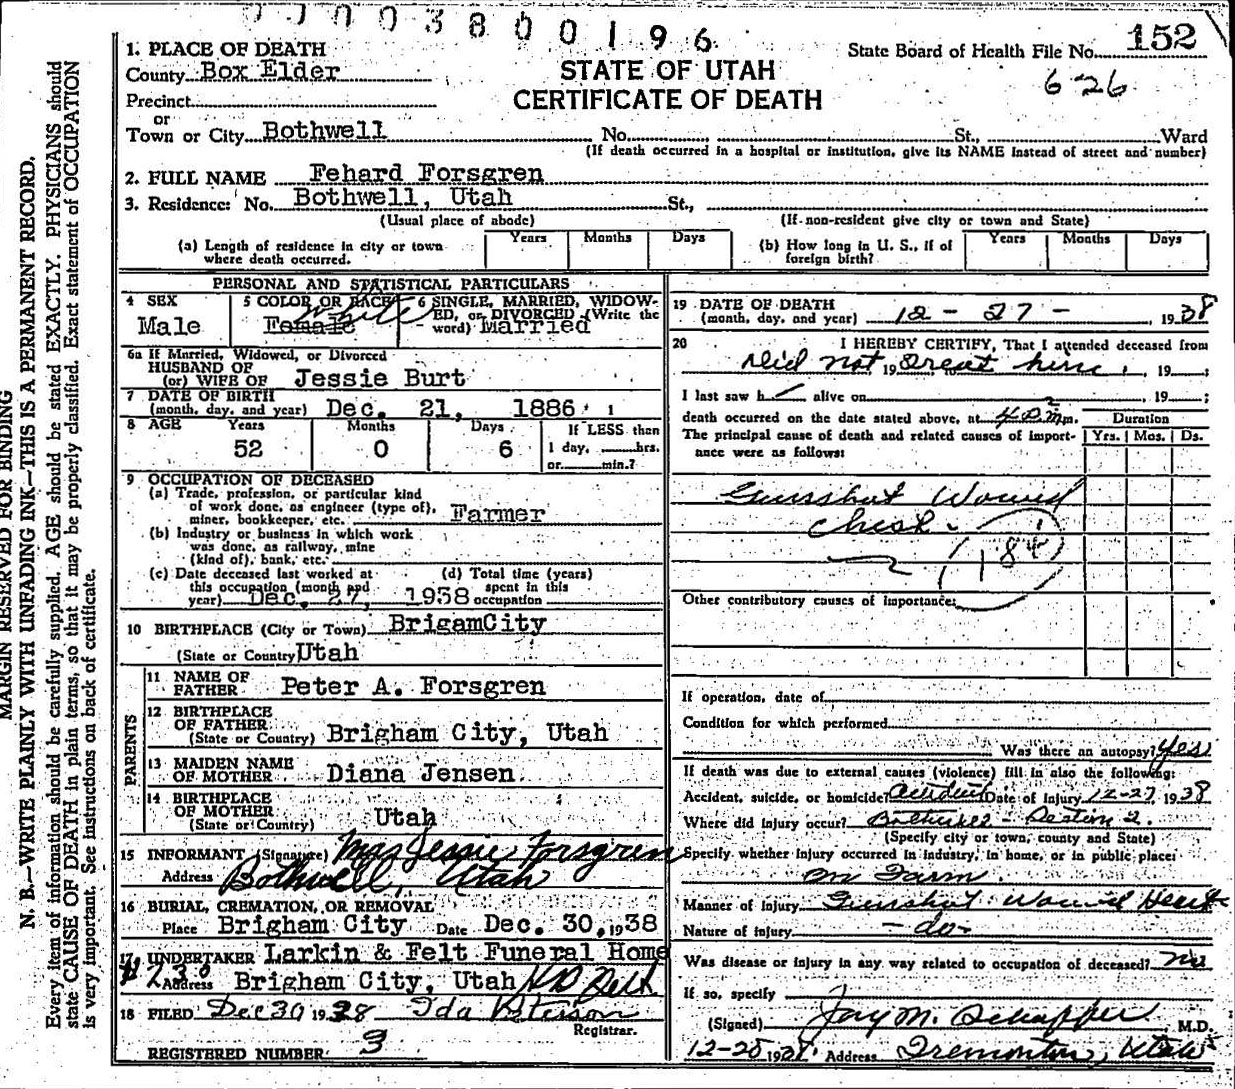 0 7 0 0 3 8 0 0 1 9 6
1. PLACE OF DEATH
County Box Elder
State Board of Health File No. 152
6-26
STATE OF UTAH
CERTIFICATE OF DEATH
Precinct
or
Town or City Bothwell No. St., Ward
(If death occurred in a hospital or institution, give its NAME instead of street and number)
2. FULL NAME Fehard Forsgren
3. Residence: No. Bothwell, Utah St.,
(Usual place of abode) (If non-resident give city or town and State)
(a) Length of residence in city or town where death occurred. Years Months Days
(b) How long in U. S., if of foreign birth? Years Months Days
PERSONAL AND STATISTICAL PARTICULARS
4 SEX Male
5 COLOR OR RACE Female White
6 SINGLE, MARRIED, WIDOW-
ED, or DIVORCED (Write the
word) Married
6a If Married, Widowed, or Divorced
HUSBAND OF
(or) WIFE OF Jessie Burt
7 DATE OF BIRTH
(month, day, and year) Dec. 21, 1886
8 AGE Years Months Days If LESS than
52 0 6 1 day, hrs.
or min.?
9 OCCUPATION OF DECEASED
(a) Trade, profession, or particular kind
of work done, as engineer (type of),
miner, bookkeeper, etc. Farmer
(b) Industry or business in which work
was done, as railway, mine
(kind of), bank, etc.
(c) Date deceased last worked at
this occupation (month and
year) Dec. 27, 1938
(d) Total time (years)
spent in this
occupation
10 BIRTHPLACE (City or Town) BrigamCity
(State or Country) Utah
PARENTS
11 NAME OF
FATHER Peter A. Forsgren
12 BIRTHPLACE
OF FATHER
(State or Country) Brigham City, Utah
13 MAIDEN NAME
OF MOTHER Diana Jensen
14 BIRTHPLACE
OF MOTHER
(State or Country) Utah
15 INFORMANT (Signature) Mrs Jessie Forsgren
Address Bothwell, Utah
16 BURIAL, CREMATION, OR REMOVAL
Place Brigham City Date Dec. 30, 1938
17 UNDERTAKER Larkin & Felt Funeral Home
#230 Address Brigham City, Utah
18 FILED Dec 30 1938 Ida Peterson
Registrar.
REGISTERED NUMBER 3
19 DATE OF DEATH
(month, day, and year) 12 - 27 - 1938
20 I HEREBY CERTIFY, That I attended deceased from
Did not 19 treat him, 19 ;
I last saw h alive on , 19 ;
death occurred on the date stated above, at 4 P.M. m.
The principal cause of death and related causes of import-
ance were as follows:
Duration
Yrs. Mos. Ds.
Gunshot Wound
Chest -
184
Other contributory causes of importance:
If operation, date of
Condition for which performed
Was there an autopsy? Yes
If death was due to external causes (violence) fill in also the following:
Accident, suicide, or homicide? Accident Date of injury 12-27 1938
Where did injury occur? Bothwell -
(Specify city or town, county and State)
Specify whether injury occurred in industry, in home, or in public place:
on Farm
Manner of Injury Gunshot Wound Heart
Nature of Injury - do -
Was disease or injury in any way related to occupation of deceased? no
If so, specify
(Signed) Jay M. Schaffer M.D.
12-28 1938 Address Tremonton, Utah
MARGIN RESERVED FOR BINDING
N. B.—WRITE PLAINLY WITH UNFADING INK—THIS IS A PERMANENT RECORD.
Every item of information should be carefully supplied. AGE should be stated EXACTLY. PHYSICIANS should
state CAUSE OF DEATH in plain terms, so that it may be properly classified. Exact statement of OCCUPATION
is very important. See instructions on back of certificate.